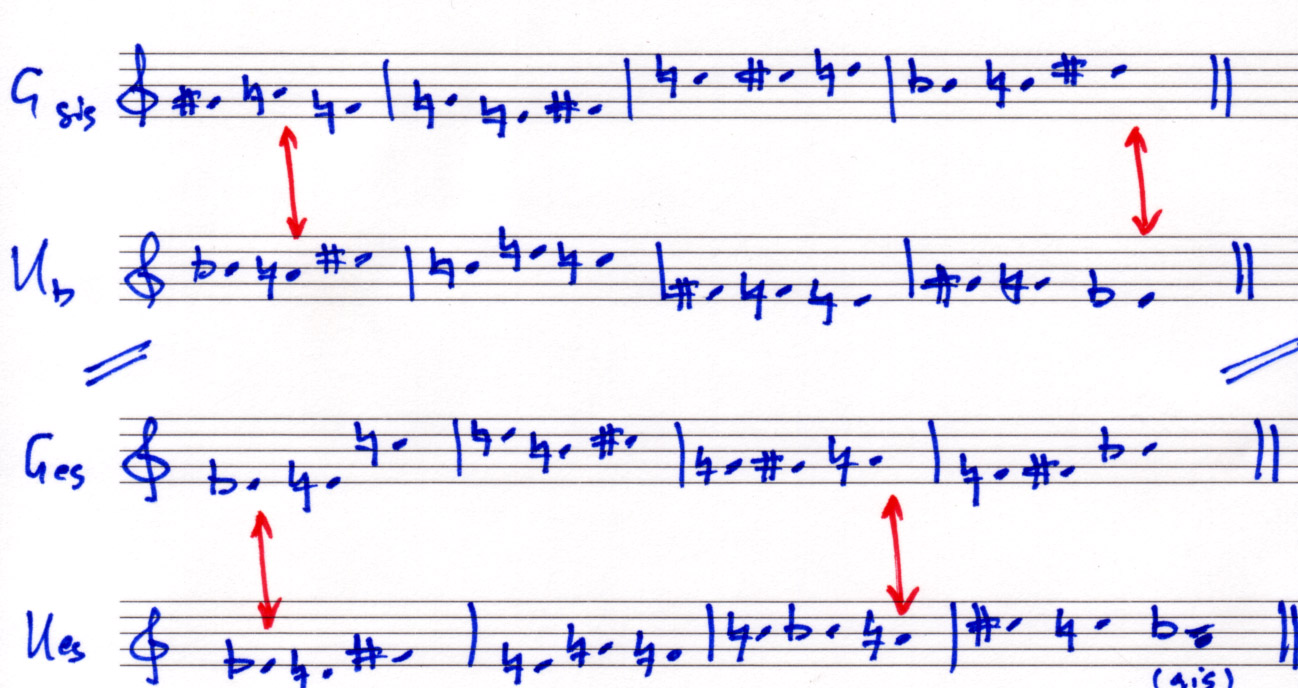 G gis
U b
G es
U es
(gis)